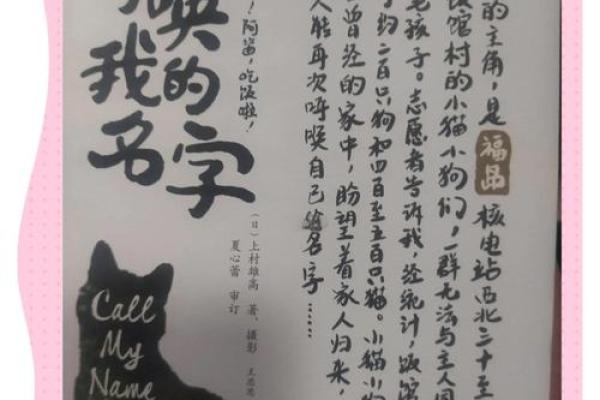 的主角，是福岛核电站西北三十至
饭馆村的小猫小狗们，一群无法与主人同
毛孩子。志愿者告诉我，经统计，饭馆
约二百只狗和四百至五百只猫。小猫小狗
曾经的家中，盼望着家人归来，
人能再次呼唤自己的名字……
！阿富，吃饭啦！
唤
我的
名字
（日）上村雄高 著、摄影
夏心蕾 审订
Call
My
Name